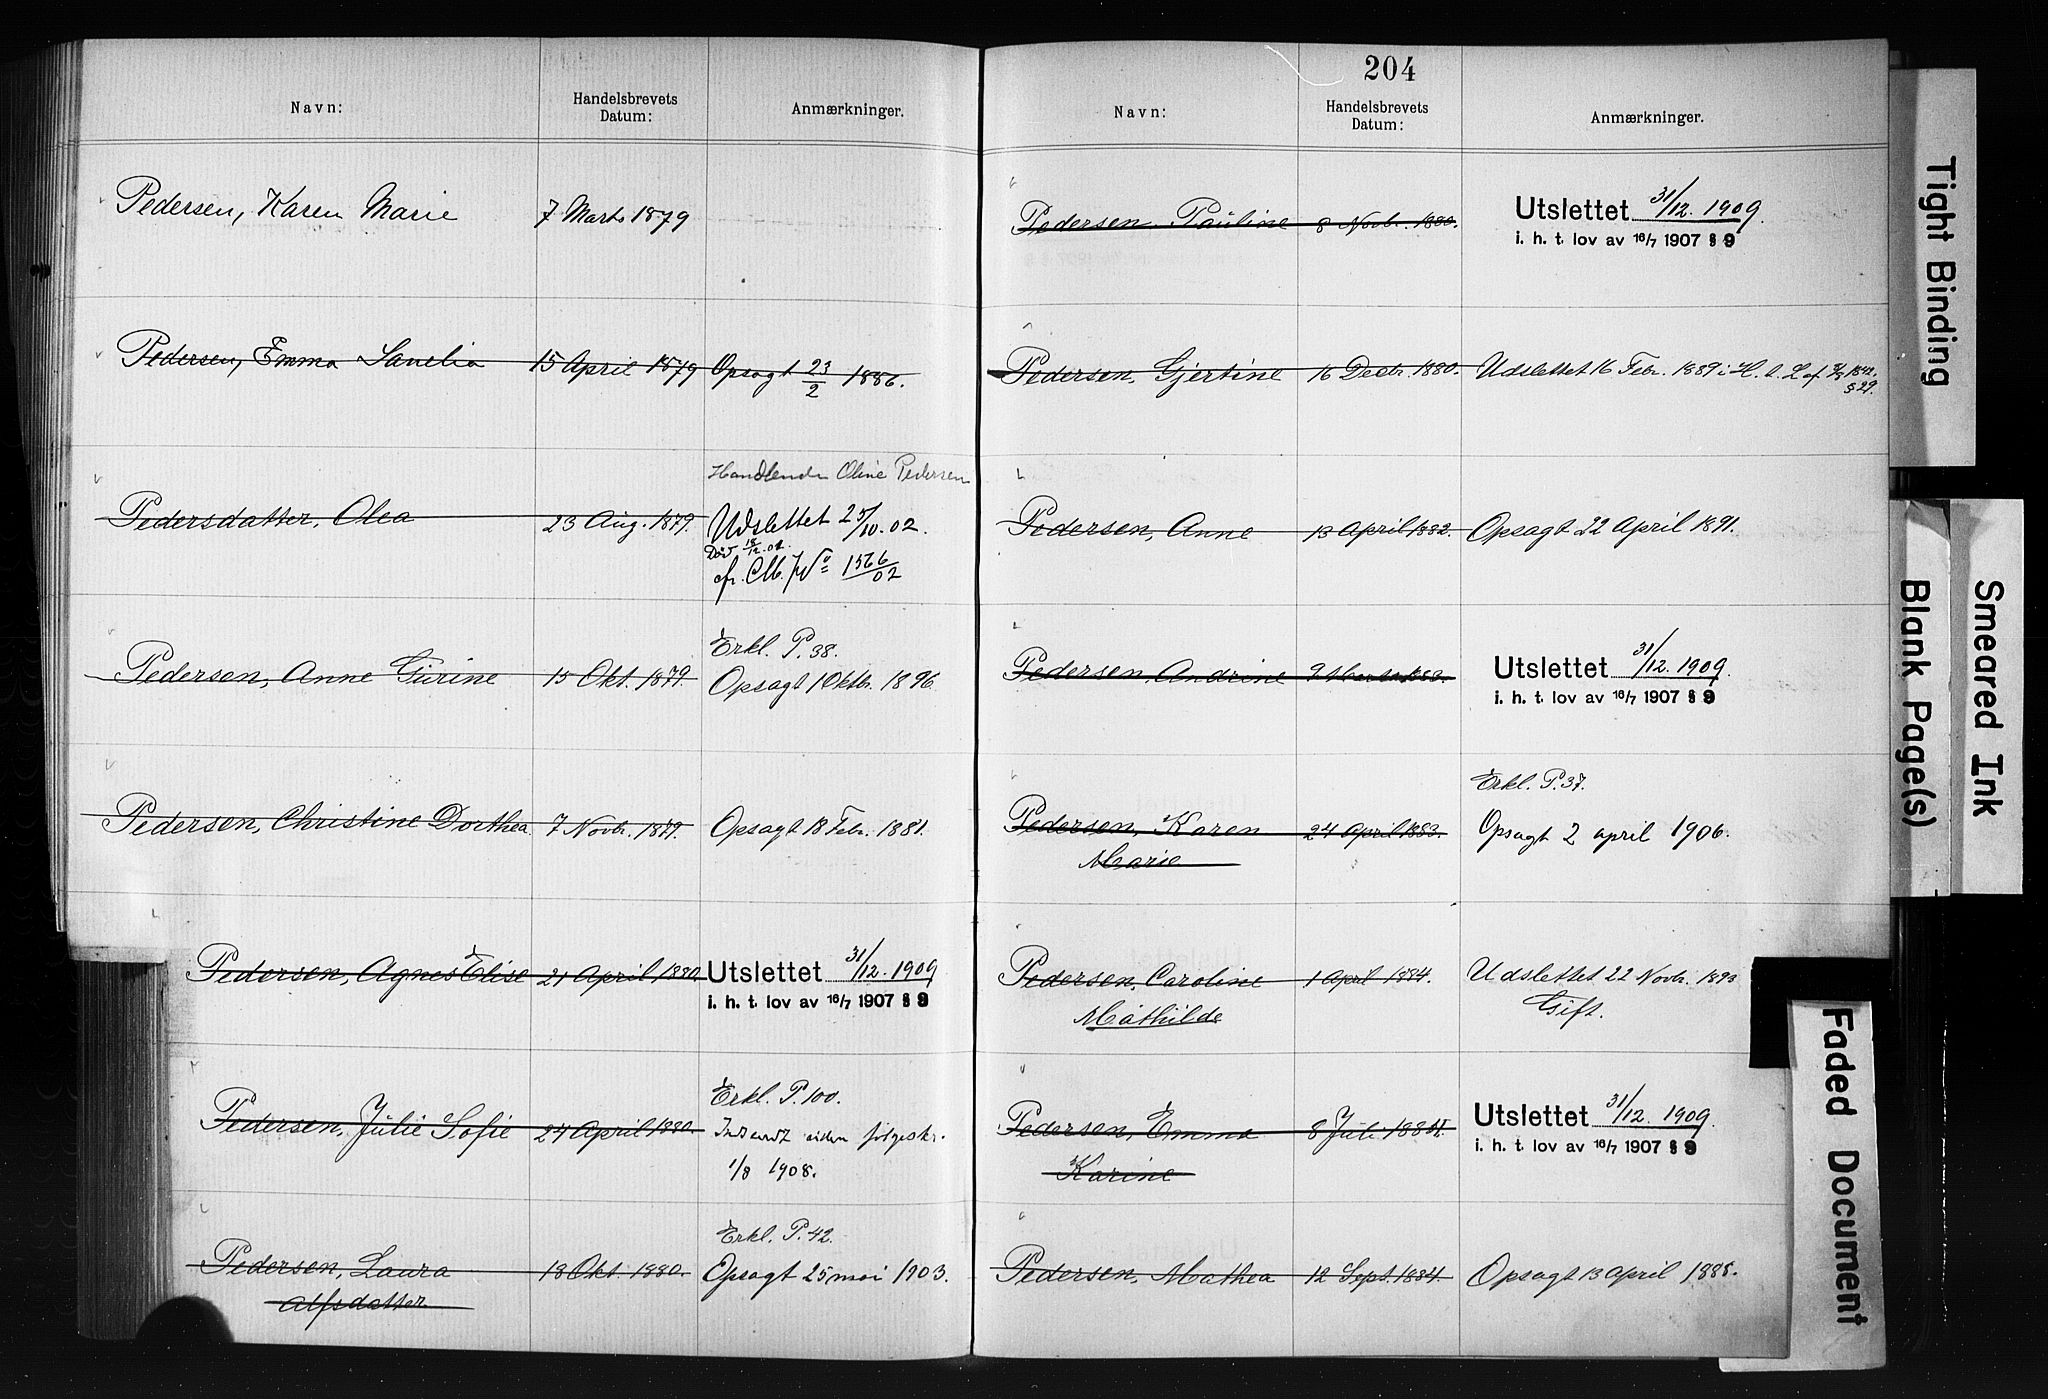 Navn:
Handelsbrevets
Datum:
Anmærkninger.
Pedersen, Karen Marie 7 Marts 1879
Pedersen, Emma 15 April 1879 Opsagt 23/2 1886.
Handlende Oline Pedersen
Pedersdatter, Olea 23 Aug. 1879. Udslettet 25/10.02.
Død 18/12.02.
cfr. No 1566/02
Erkl. P. 38.
Pedersen, Anne Gurine 15 Okt. 1879. Opsagt 1 Oktb. 1896.
Pedersen, Christine Dorthea 7 Novbr. 1879. Opsagt 18 Febr. 1881.
Pedersen, Agnes Elise 21 April 1880. Utslettet 31/12. 1909
i. h. t. lov av 16/7 1907 § 9
Erkl. P. 100.
Pedersen, Julie Sofie 27 April 1880.
1/8 1908.
Erkl. P. 42.
Pedersen, Laura 18 Okt. 1880. Opsagt 25 mai 1903.
Alfsdatter
204
Navn:
Handelsbrevets
Datum:
Anmærkninger.
Pedersen Pauline 8 Novbr. 1880. Utslettet 31/12. 1909.
i. h. t. lov av 16/7 1907 § 9
Pedersen, Gjertine 16 Decbr. 1880. Udslettet 16 Febr. 1889 i H. t. L af 8/8 1842.
§ 29.
Pedersen, Anne 13 April 1882. Opsagt 22 April 1891.
Pedersen, Andrine 9 Marts 1883. Utslettet 31/12. 1909.
i. h. t. lov av 16/7 1907 § 9
Erkl. P. 37.
Pedersen, Karen 24 April 1883. Opsagt 2 april 1906.
Marie
Pedersen, Caroline 1 April 1884. Udslettet 22 Novbr. 1893
Mathilde Gift.
Pedersen, Emma 8 Juli 1884. Utslettet 31/12. 1909.
Karine i. h. t. lov av 16/7 1907 § 9
Pedersen, Mathea 12 Sept. 1884. Opsagt 13 April 1888.
Tight Binding
Smeared Ink
Blank Page(s)
Faded Document